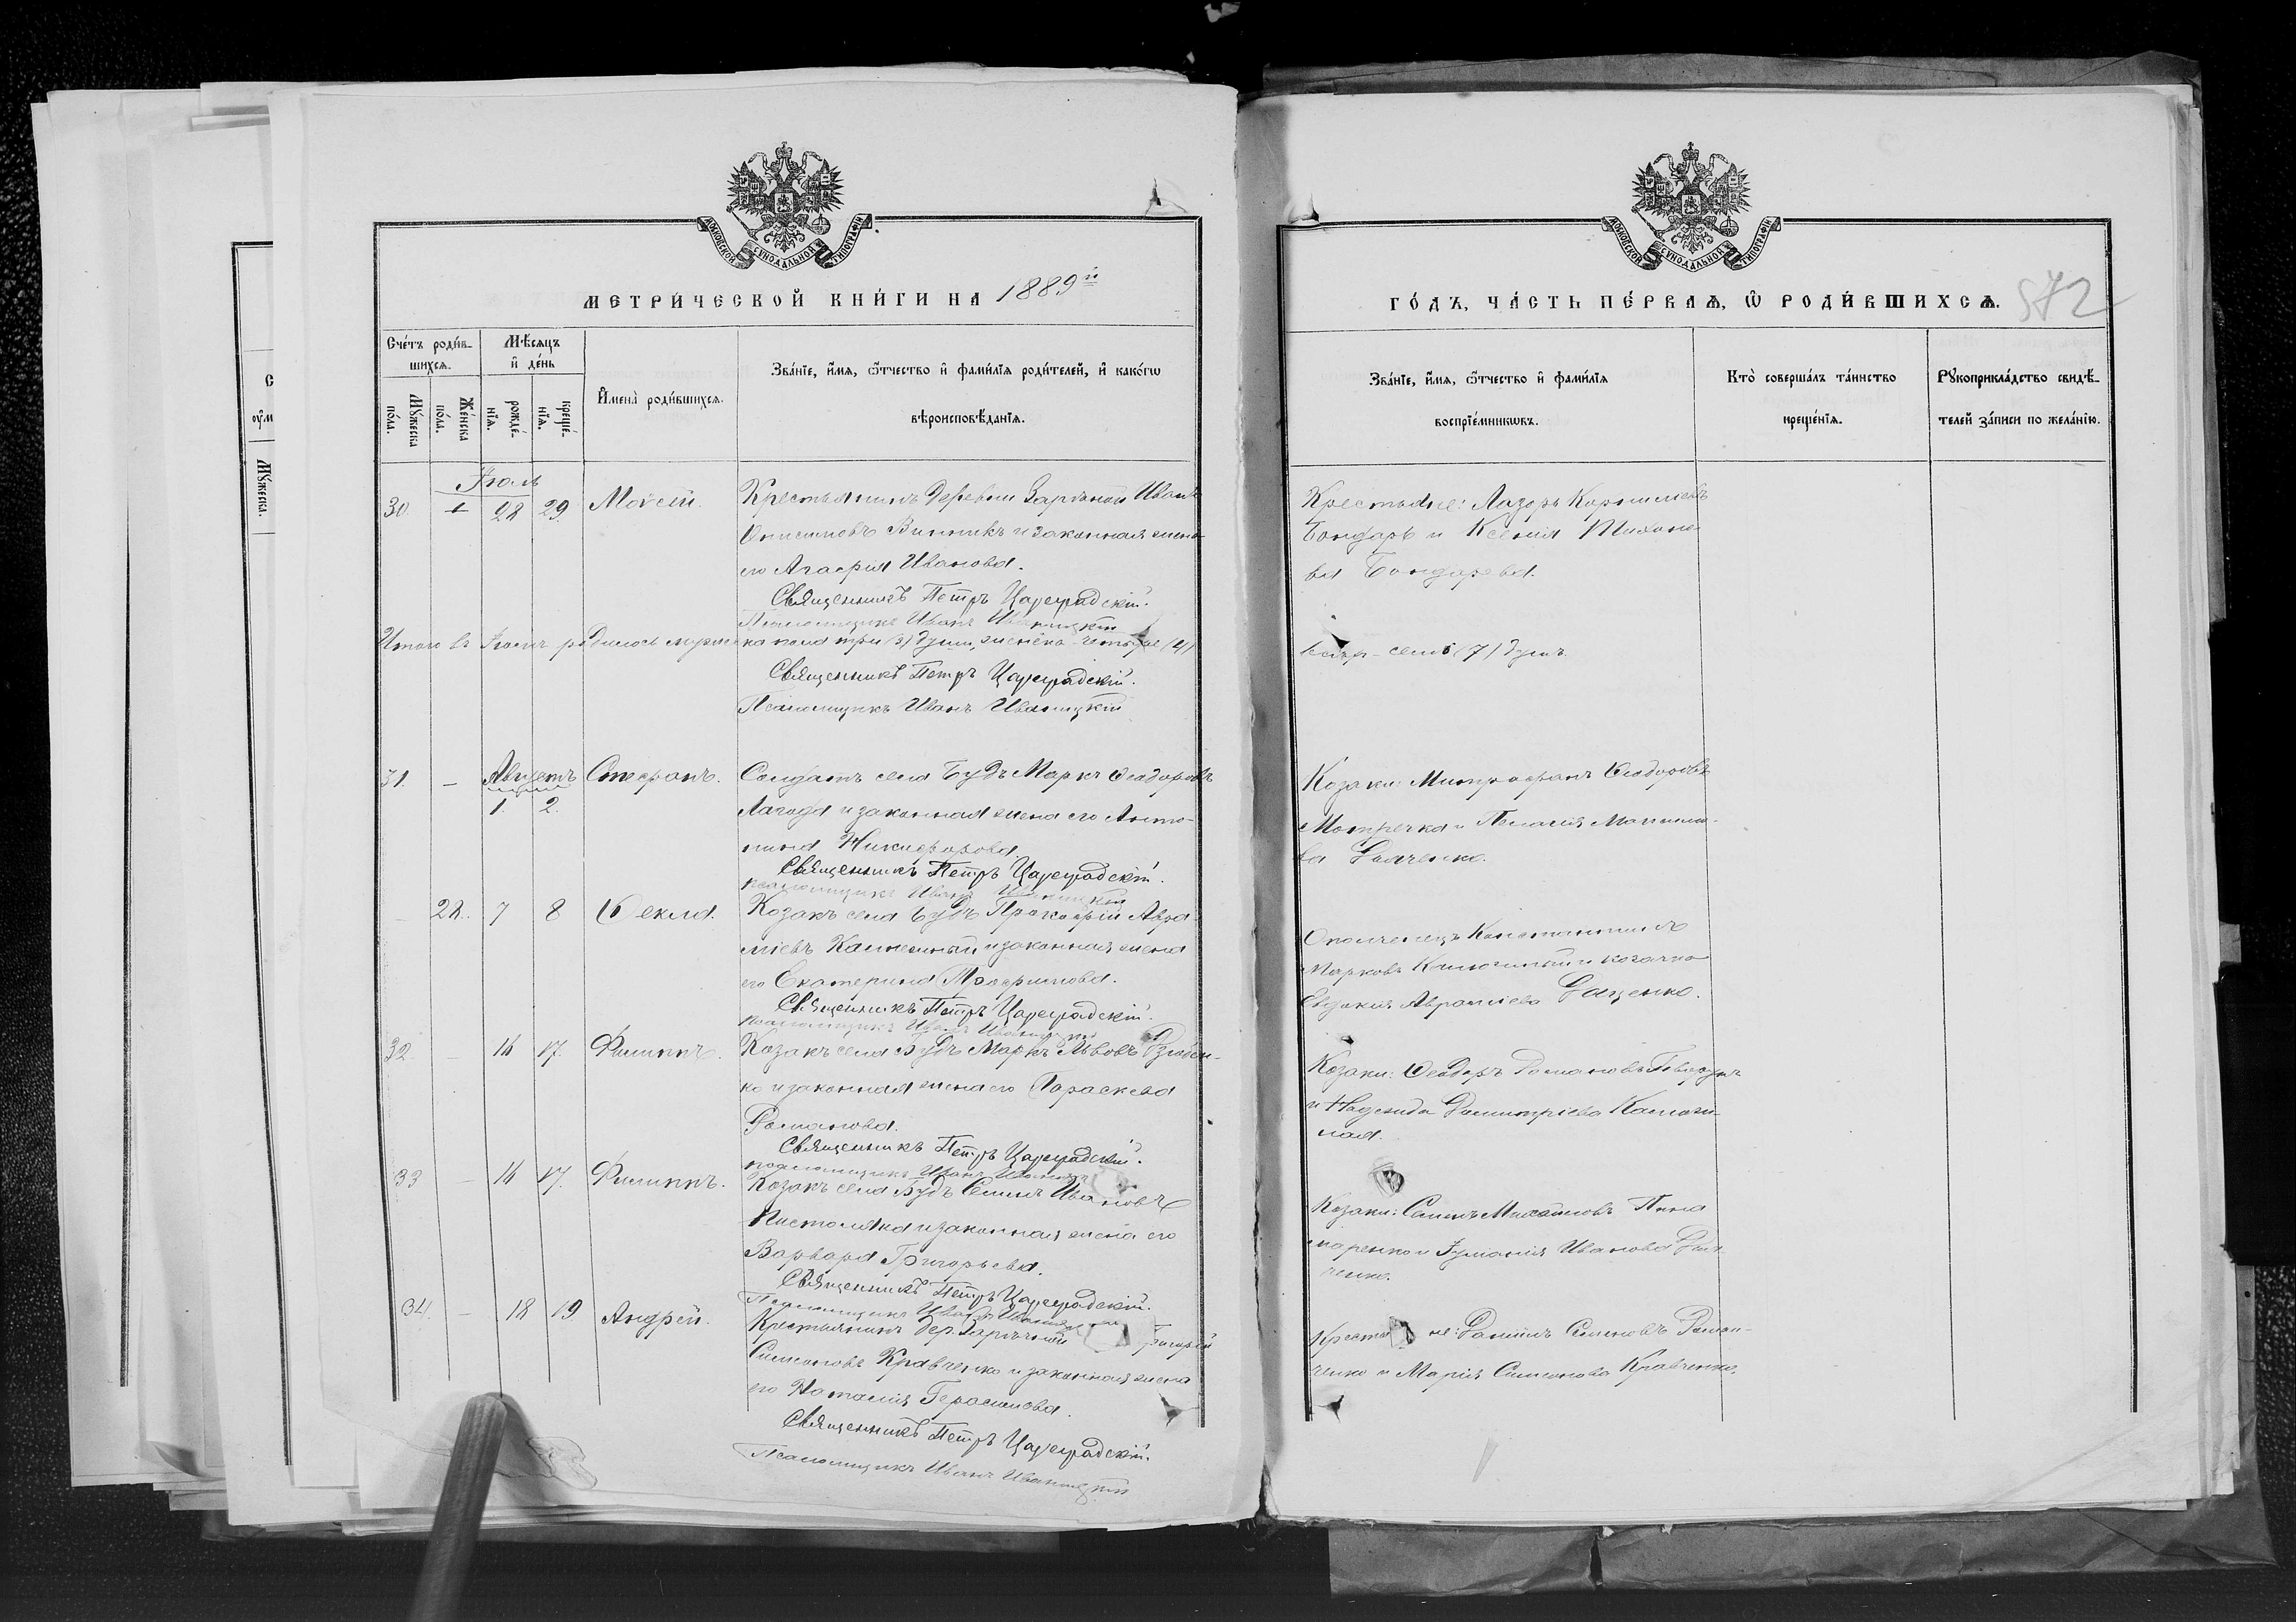 МОСКОВСКОЙ СѴНОДАЛЬНОЙ ТИПОГРАФІИ
МЕТРИ́ЧЕСКОЙ КНИ́ГИ НА 1889й
Сче́тъ роди́в-
шихсѧ.
Мѣ́сѧцъ
и҆ де́нь
Мꙋ́жеска
по́ла.
Же́нска
по́ла.
рожде́-
нїѧ.
креще́-
нїѧ.
И҆мена̀ роди́вшихсѧ.
Зва́нїе, и҆́мѧ, ѻ҆́тчество и҆ фами́лїѧ роди́телей, и҆ како́гѡ
вѣроисповѣ́данїѧ.
Іюль
30. 1 28 29 Моисей. Крестьянинъ деревни Заручной Иванъ
Онисимовъ Винникъ и законная жена
его Агафія Иванова.
Священникъ Петръ Цареградскій.
Псаломщикъ Иванъ Иваницкій
Итого въ Іюлѣ родилось мужеска пола три (3) души, женска четыре (4)
Священникъ Петръ Цареградскій.
Псаломщикъ Иванъ Иваницкій
31. — Августъ Стефанъ. Солдатъ села Будъ Маркъ Ѳеодоровъ
1. 2. Лагода и законная жена его Анто-
нина Никифорова
Священникъ Петръ Цареградскій.
псаломщикъ Иванъ Иваницкій
22. 7 8 Ѳекла. Козакъ села Будъ Прокофій Авра-
міевъ и законная жена
его Екатерина Трофимова.
Священникъ Петръ Цареградскій.
псаломщикъ Иванъ Иваницкій
32. — 16 17. Филиппъ. Козакъ села Будъ Маркъ Львовъ
ко и законная жена его Параскева
Романова.
Священникъ Петръ Цареградскій.
псаломщикъ Иванъ Иваницкій
33 — 16 17. Филиппъ. Козакъ села Будъ Семенъ Ивановъ
и законная жена его
Варвара Григорьева.
Священникъ Петръ Цареградскій.
Псаломщикъ Иванъ Иваницкій
34. — 18 19 Андрей. Крестьянинъ дер. Заручной Григорій
Симоновъ Кравченко и законная жена
его Наталія Герасимова.
Священникъ Петръ Цареградскій.
Псаломщикъ Иванъ Иваницкій
МОСКОВСКОЙ СѴНОДАЛЬНОЙ ТИПОГРАФІИ
ГО́ДЪ, ЧА́СТЬ ПЕ́РВАѦ, Ѡ҆ РОДИ́ВШИХСѦ. 572
Зва́нїе, и҆́мѧ, ѻ҆́тчество и҆ фами́лїѧ
воспрїе́мникѡвъ.
Кто̀ соверша́лъ та́инство
креще́нїѧ.
Рꙋкоприкла́дство свидѣ́-
телей за́писи по жела́нїю.
Крестьяне: Лазорь Корнилиевъ
Бондарь и Ксенія Тихоно-
ва Бондарева.
семь (7) душъ.
Козаки: Митрофанъ Ѳеодоровъ
и Пелагія
ва
Ополченецъ Константинъ
Марковъ и козачка
Евдокія Авраміева Яценко.
Козаки: Ѳеодоръ Романовъ
и Надежда Димитріева
ная.
Козаки: Семенъ Михайловъ
маренко и Иванова
ченко.
Крестьяне: Даніилъ Семеновъ Роман-
ченко и Марія Симонова Кравченко.